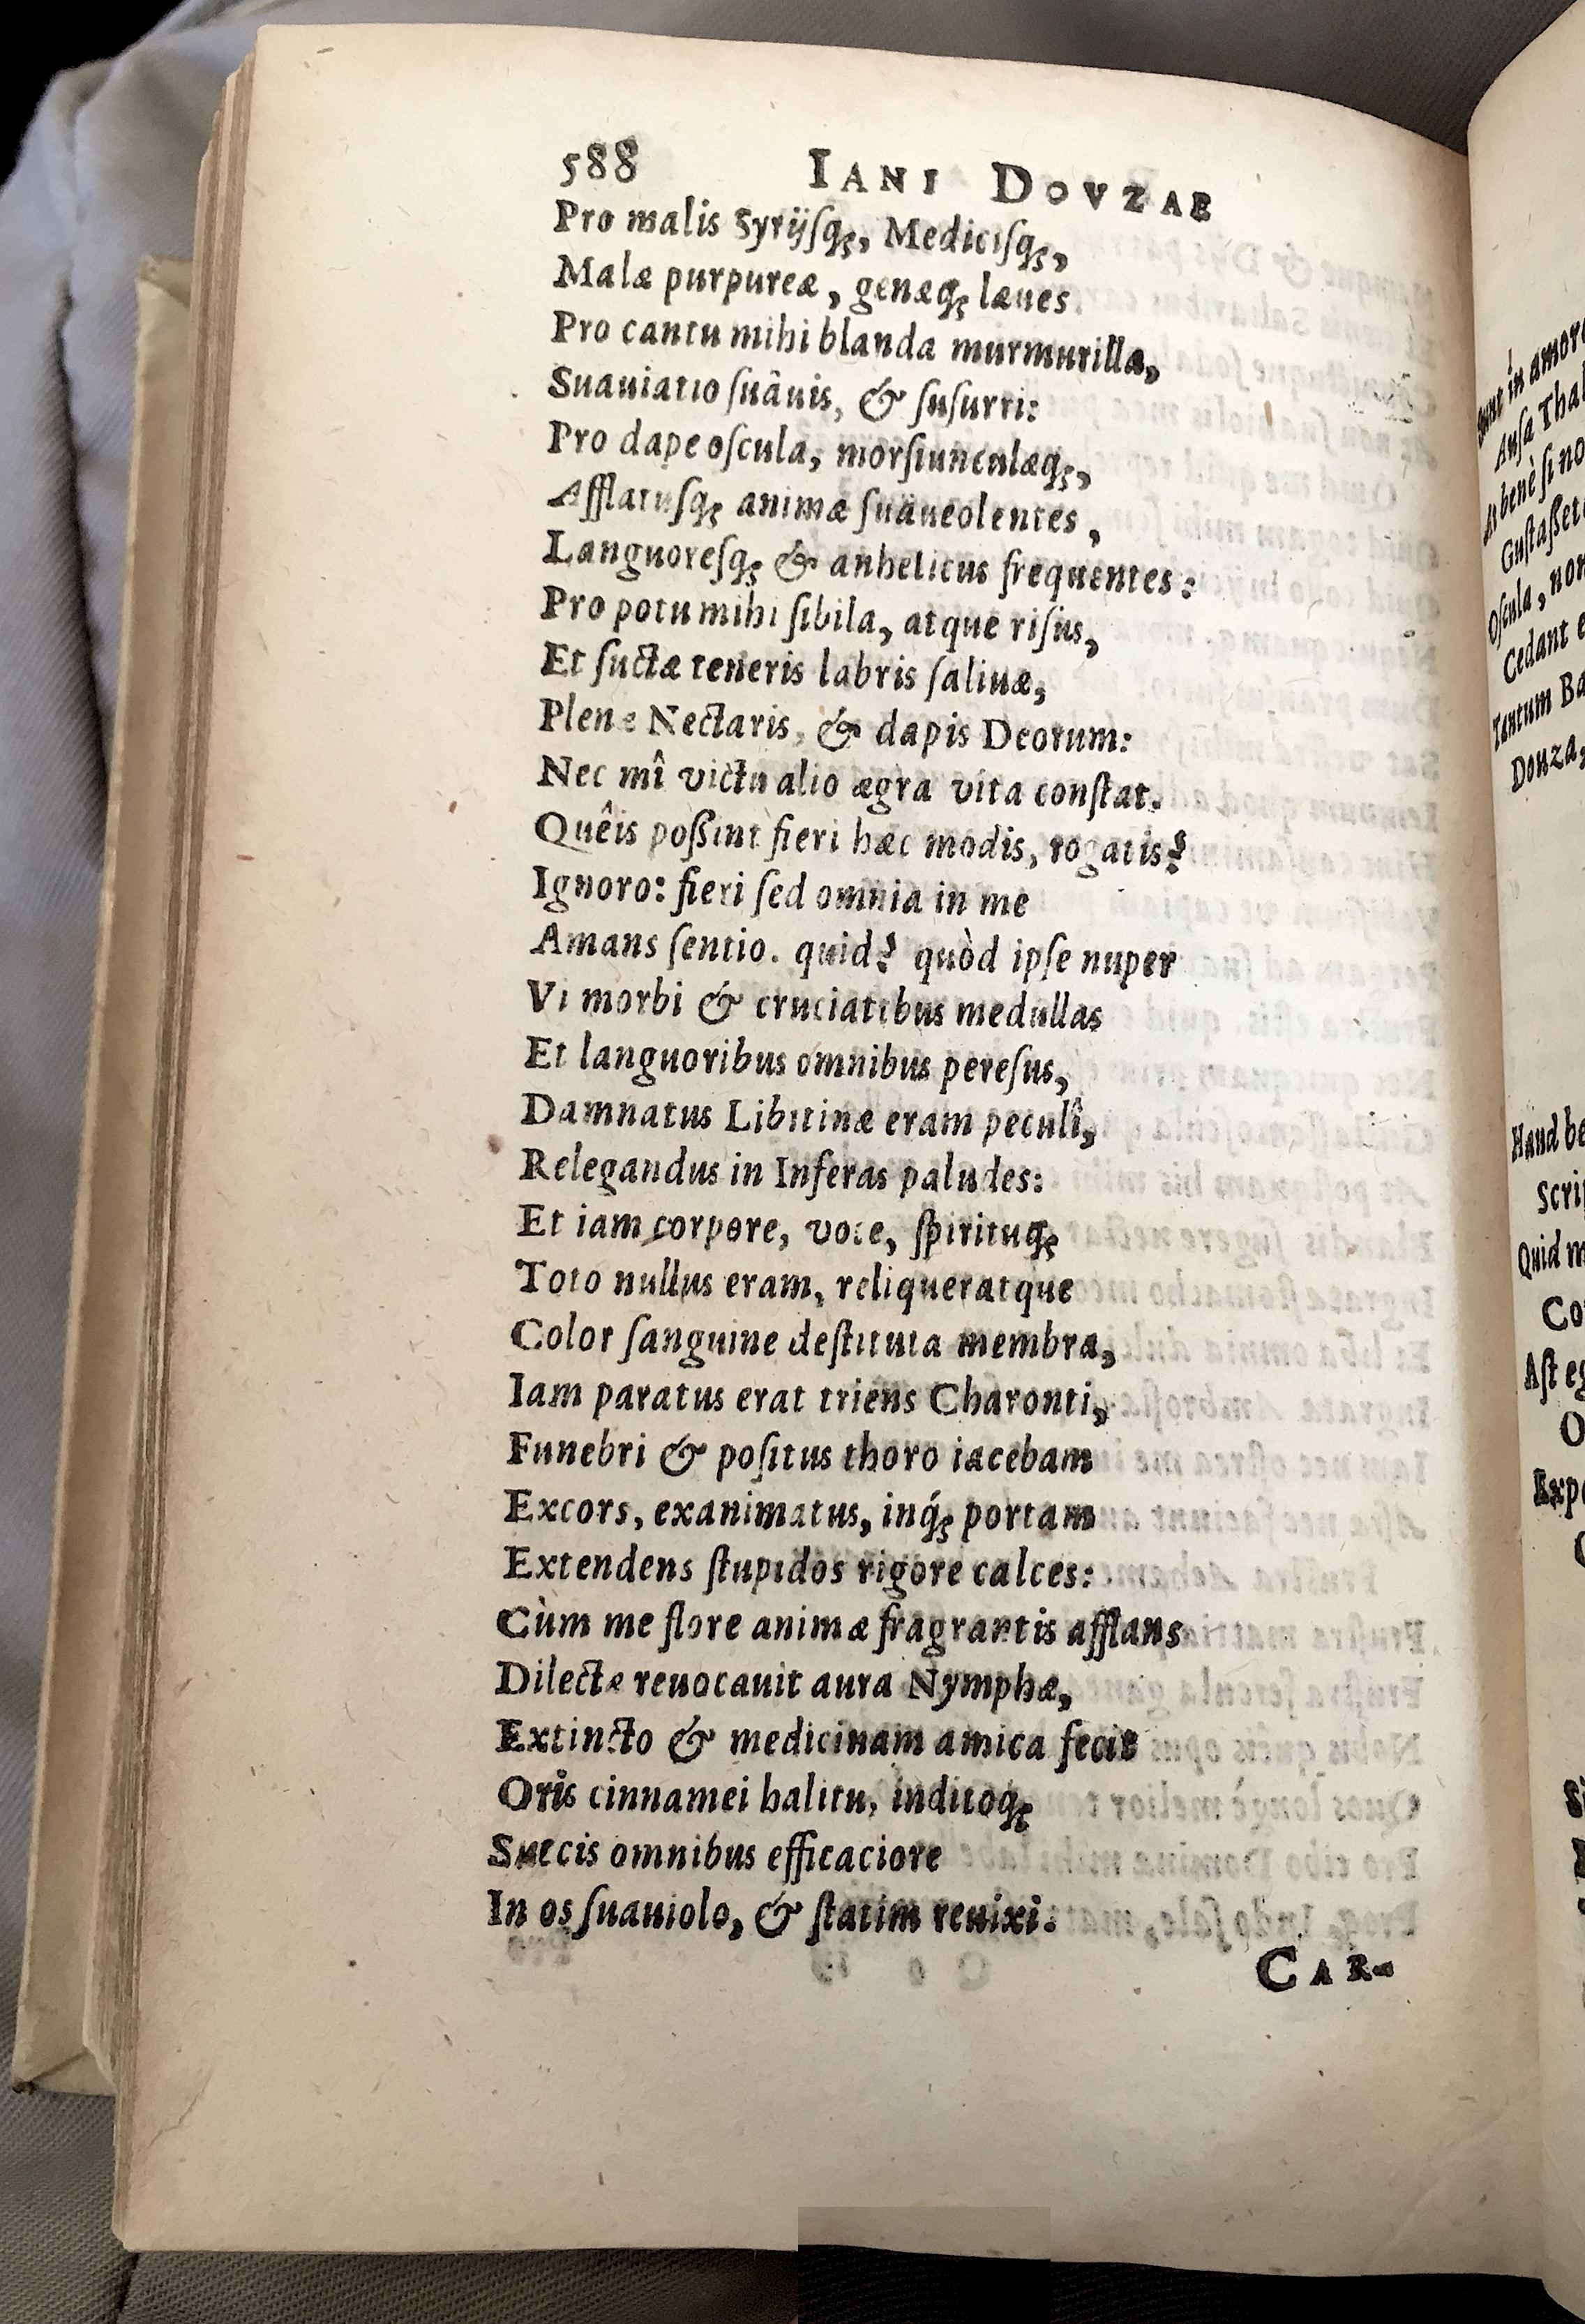 588 IANI DOVZAE
Pro malis Syrijſq́ꝫ, Mediciſq́ꝫ,
Malæ purpureæ, genæq́ꝫ læues.
Pro cantu mihi blanda murmurilla,
Suauiatio ſuâuis, & ſuſurri:
Pro dape oſcula, morſiunculæq́ꝫ,
Afflatuſq́ꝫ animæ ſuâueolentes,
Languoreſq́ꝫ & anhelitus frequentes:
Pro potu mihi ſibila, atque riſus,
Et ſuctæ teneris labris ſaliuæ,
Plenæ Nectaris, & dapis Deorum:
Nec mî victu alio ægra vita conſtat.
Quêis poßint fieri hæc modis, rogatis?
Ignoro: fieri ſed omnia in me
Amans ſentio. quid? quòd ipſe nuper
Vi morbi & cruciatibus medullas
Et languoribus omnibus pereſus,
Damnatus Libitinæ eram peculî,
Relegandus in Inferas paludes:
Et iam corpore, voce, ſpirituq́ꝫ
Toto nullus eram, reliqueratque
Color ſanguine deſtituta membra,
Iam paratus erat triens Charonti,
Funebri & poſitus thoro iacebam
Excors, exanimatus, inq́ꝫ portam
Extendens ſtupidos rigore calces:
Cùm me flore animæ fragrantis afflans
Dilectæ reuocauit aura Nymphæ,
Extincto & medicinam amica fecit
Oris cinnamei halitu, inditoq́ꝫ
Succis omnibus efficaciore
In os ſuauiolo, & ſtatim reuixi.
CAR-